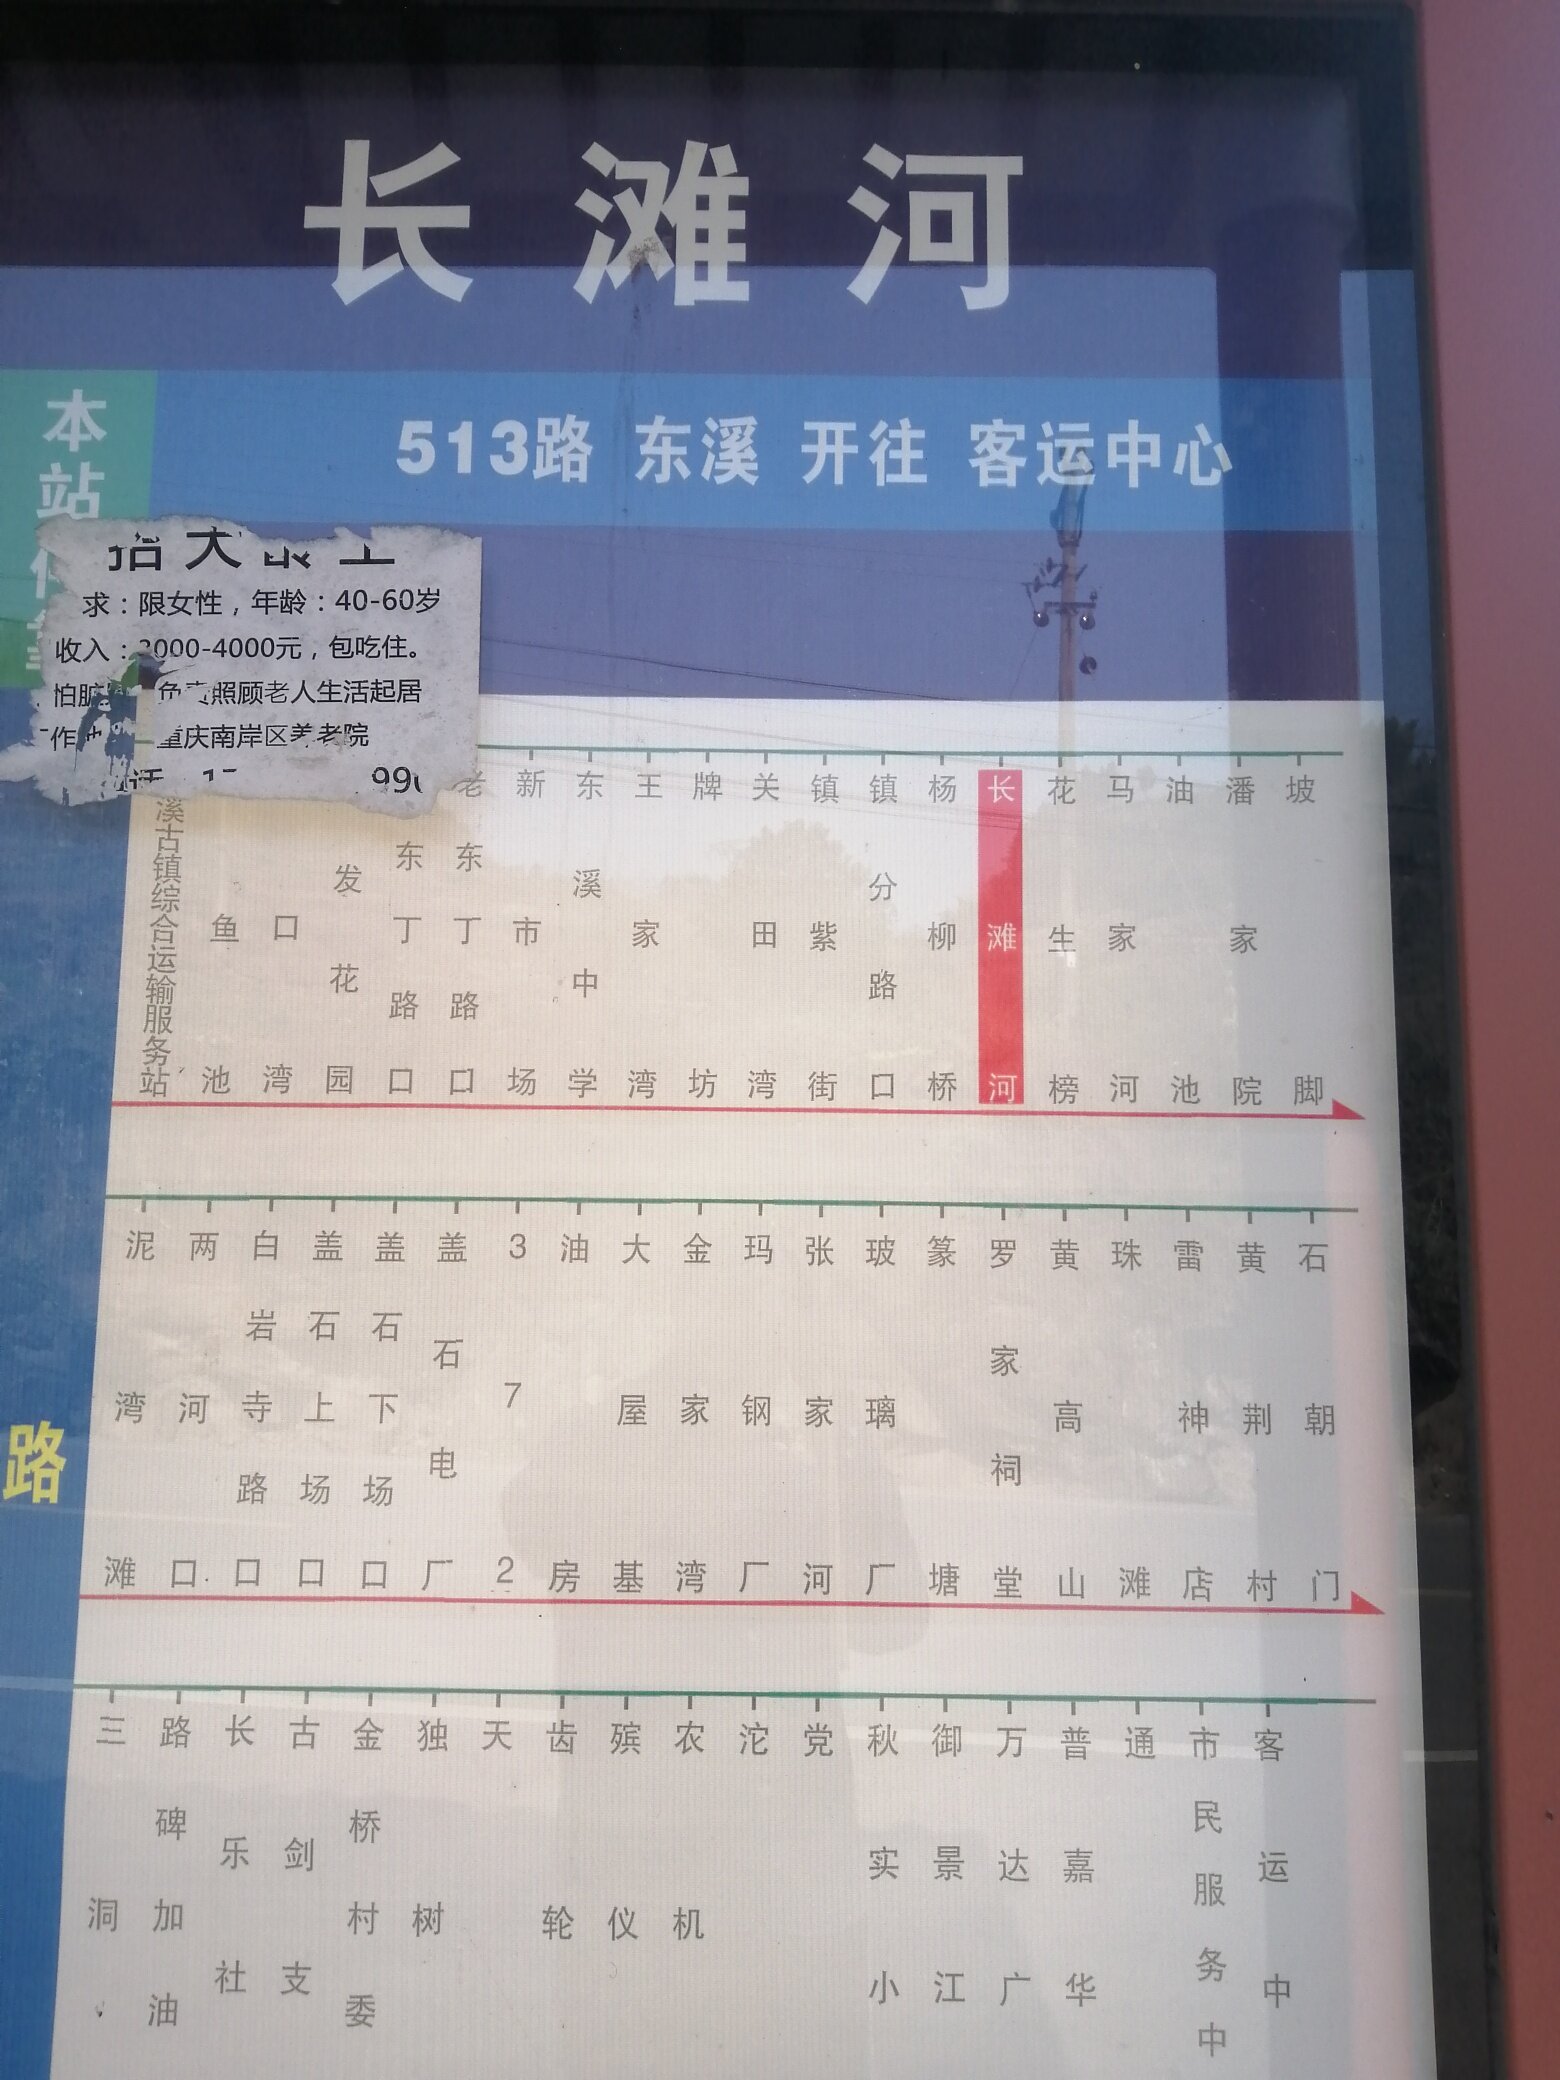 长滩河
本站
513路 东溪 开往 客运中心
求：限女性，年龄：40-60岁
收入：3000-4000元，包吃住。
怕脏 负责照顾老人生活起居
作 重庆南岸区养老院
99
溪古镇综合运输服务站
鱼池
口湾
发花园
东丁路口
老东丁路口
新市场
东溪中学
王家湾
牌坊
关田湾
镇紫街
镇分路口
杨柳桥
长滩河
花生榜
马家河
油池
潘家院
坡脚
泥湾滩
两河口
白岩寺路口
盖石上场口
盖石下场口
盖石电厂
372
油房
大屋基
金家湾
玛钢厂
张家河
玻璃厂
篆塘
罗家祠堂
黄高山
珠滩
雷神店
黄荆村
石朝门
路
三洞
路碑加油
长乐社
古剑支
金桥村委
独树
天
齿轮
殡仪
农机
沱
党
秋实小
御景江
万达广
普嘉华
通
市民服务中
客运中